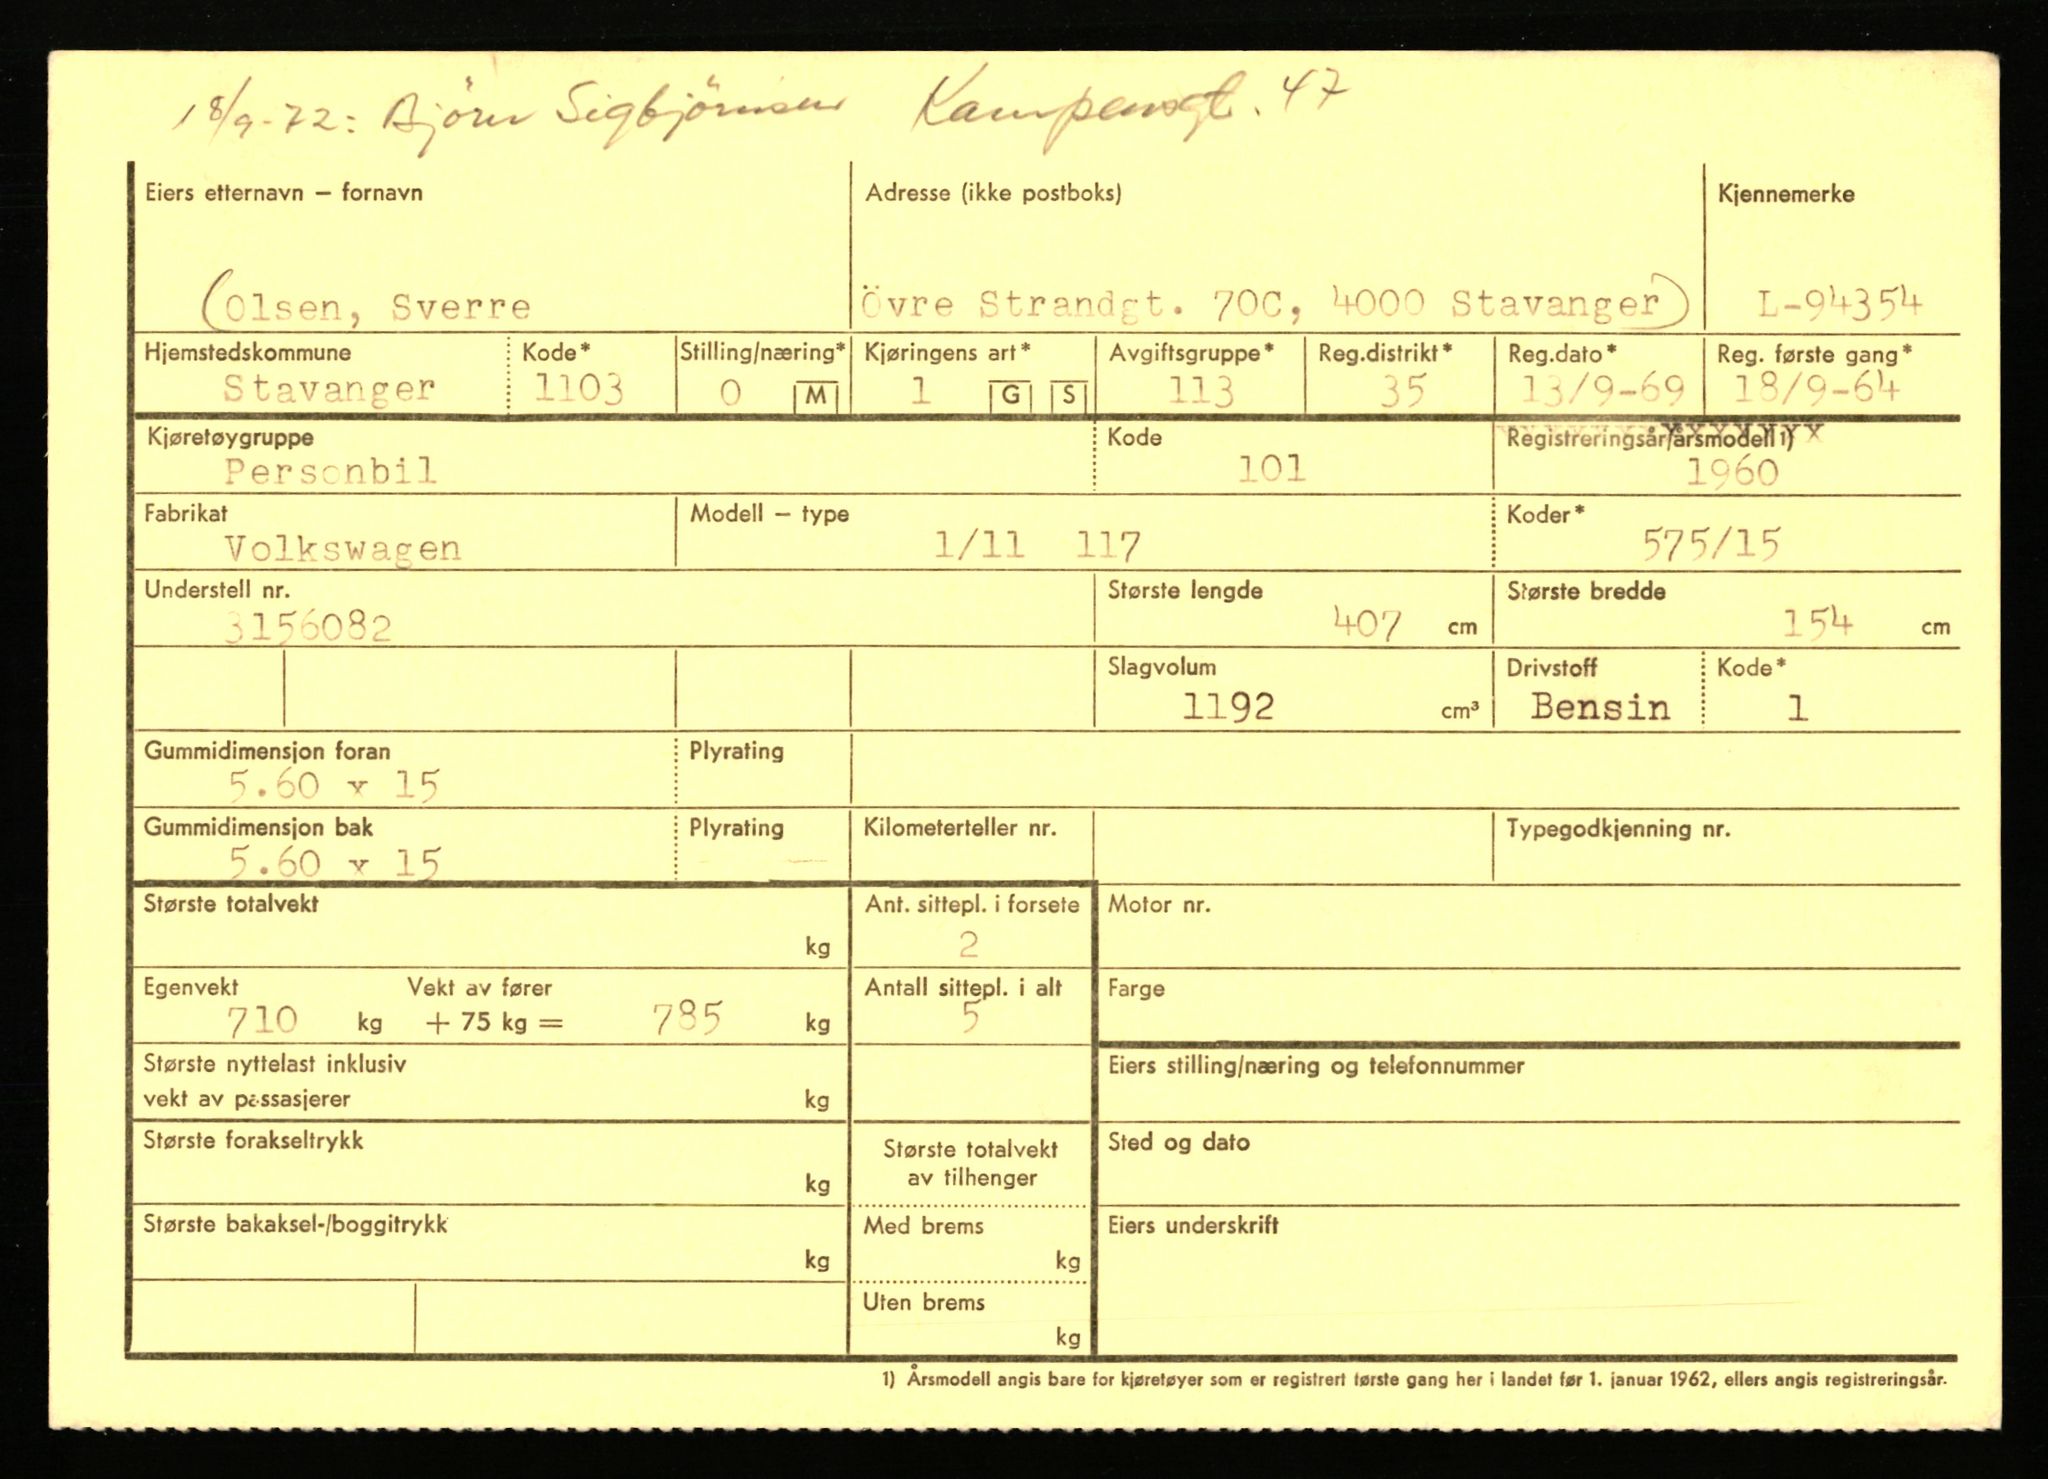 18/9-72: Bjørn Sigbjörnsen Kampensgt. 47
Eiers etternavn – fornavn Adresse (ikke postboks) Kjennemerke
(Olsen, Sverre Övre Strandgt. 70C, 4000 Stavanger) L-94354
Hjemstedskommune Kode* Stilling/næring* Kjøringens art* Avgiftsgruppe* Reg.distrikt* Reg.dato* Reg. første gang*
Stavanger 1103 0 M 1 G S 113 35 13/9-69 18/9-64
Kjøretøygruppe Kode Registreringsår/årsmodell 1)
Personbil 101 1960
Fabrikat Modell – type Koder*
Volkswagen 1/11 117 575/15
Understell nr. Største lengde Største bredde
3156082 407 cm 154 cm
Slagvolum Drivstoff Kode*
1192 cm³ Bensin 1
Gummidimensjon foran Plyrating
5.60 x 15
Gummidimensjon bak Plyrating Kilometerteller nr. Typegodkjenning nr.
5.60 x 15
Største totalvekt Ant. sittepl. i forsete Motor nr.
kg 2
Egenvekt Vekt av fører Antall sittepl. i alt Farge
710 kg + 75 kg = 785 kg 5
Største nyttelast inklusiv Eiers stilling/næring og telefonnummer
vekt av passasjerer kg
Største forakseltrykk Største totalvekt Sted og dato
kg av tilhenger
Største bakaksel-/boggitrykk Med brems Eiers underskrift
kg kg
Uten brems
kg
1) Årsmodell angis bare for kjøretøyer som er registrert første gang her i landet før 1. januar 1962, ellers angis registreringsår.